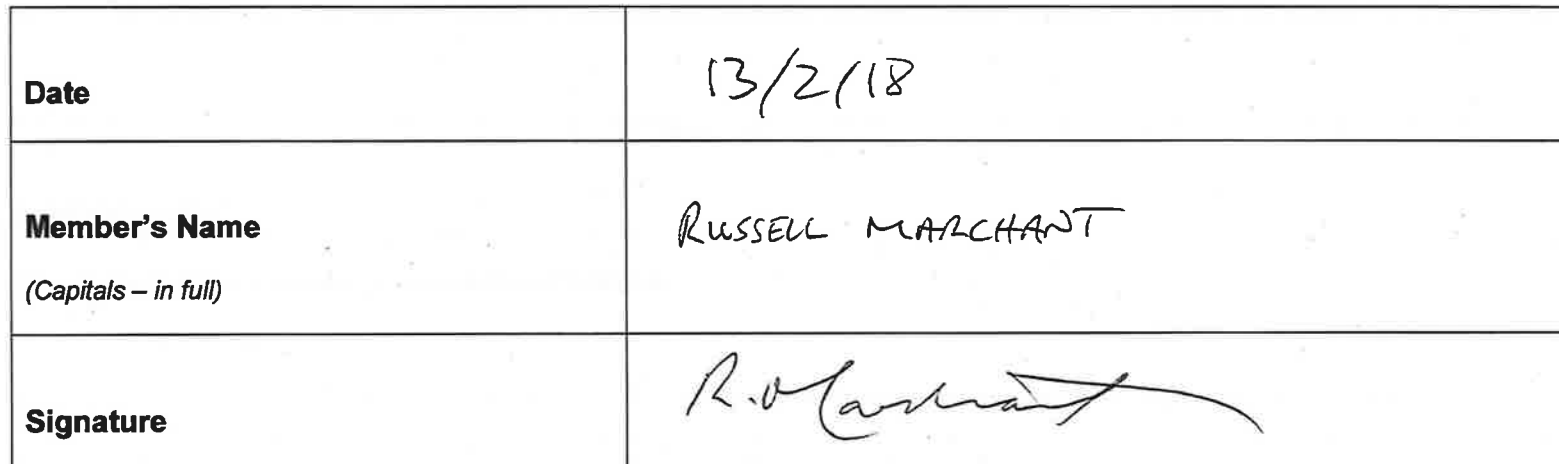 Date
13/2/18
Member's Name
(Capitals – in full)
RUSSELL MARCHANT
Signature
R. Marchant